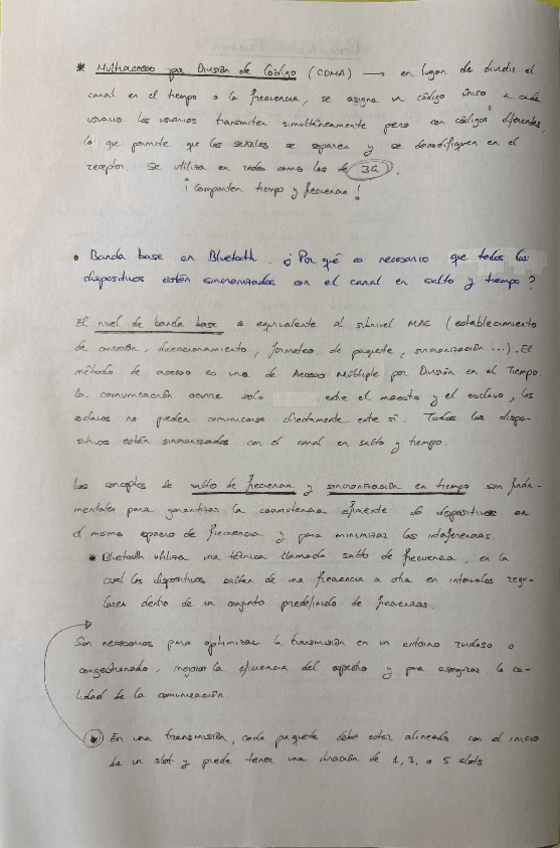 * Multiacceso por División de Código (CDMA) → en lugar de dividir el
canal en el tiempo o la frecuencia, se asigna un código único a cada
usuario. Los usuarios transmiten simultáneamente pero con códigos diferentes,
lo que permite que las señales se separen y se decodifiquen en el
receptor. Se utiliza en redes como las de 3G.
¡Comparten tiempo y frecuencia!
• Banda base en Bluetooth. ¿Por qué es necesario que todos los
dispositivos estén sincronizados con el canal en salto y tiempo?
El nivel de banda base es equivalente al subnivel MAC (establecimiento
de conexión, direccionamiento, formateo de paquete, sincronización...). El
método de acceso es uno de Acceso Múltiple por División en el Tiempo.
La comunicación ocurre solo entre el maestro y el esclavo, los
esclavos no pueden comunicarse directamente entre sí. Todos los dispo-
sitivos están sincronizados con el canal en salto y tiempo.
Los conceptos de salto de frecuencia y sincronización en tiempo son funda-
mentales para garantizar la coexistencia eficiente de dispositivos en
el mismo espacio de frecuencia y para minimizar las interferencias.
* Bluetooth utiliza una técnica llamada salto de frecuencia, en la
cual los dispositivos saltan de una frecuencia a otra en intervalos regu-
lares dentro de un conjunto predefinido de frecuencias.
Son necesarios para optimizar la transmisión en un entorno ruidoso o
congestionado, mejorar la eficiencia del espectro y para asegurar la ca-
lidad de la comunicación.
* En una transmisión, cada paquete debe estar alineado con el inicio
de un slot y puede tener una duración de 1, 3, o 5 slots